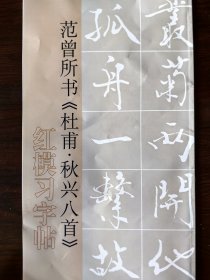 丛菊两開他
孤舟一繫故
范曾所书《杜甫·秋兴八首》
红模习字帖